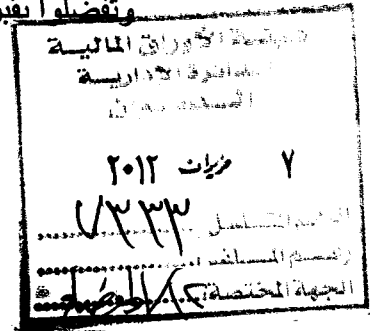 وتفضلوا بقبو
هيئة الأوراق المالية
الدائرة الادارية
الديوان
٧ حزيران ٢٠١٢
الرقم المتسلسل ٧٣٣٣
رقم الملف
الجهة المختصة: